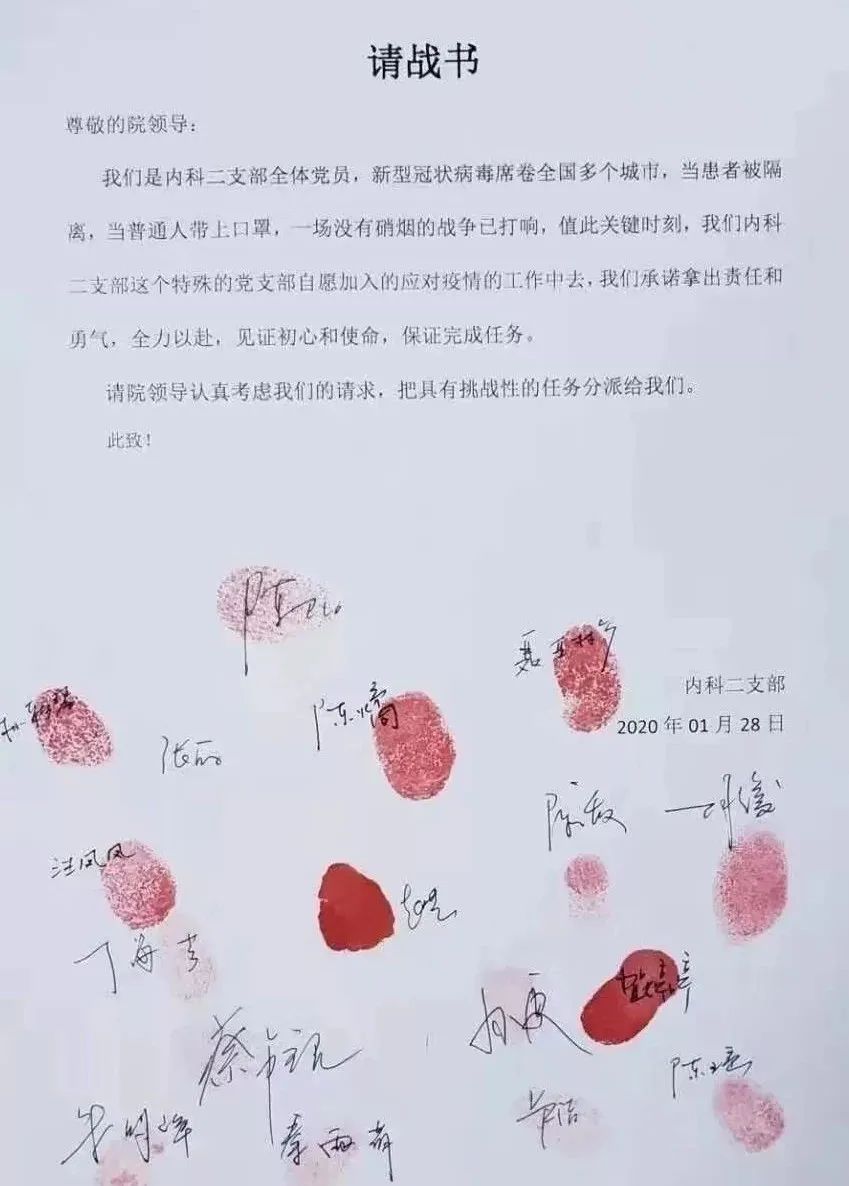 请战书
尊敬的院领导：
我们是内科二支部全体党员，新型冠状病毒席卷全国多个城市，当患者被隔
离，当普通人带上口罩，一场没有硝烟的战争已打响，值此关键时刻，我们内科
二支部这个特殊的党支部自愿加入的应对疫情的工作中去，我们承诺拿出责任和
勇气，全力以赴，见证初心和使命，保证完成任务。
请院领导认真考虑我们的请求，把具有挑战性的任务分派给我们。
此致！
内科二支部
2020 年 01 月 28 日
张丽
陈敏
汪凤凤
丁海
蔡
陈